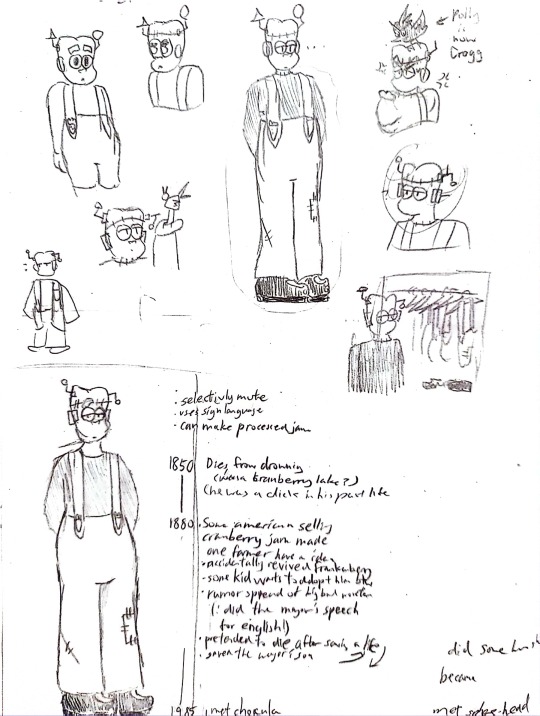 Polly
is
now
Crogg
· selectivly mute
· uses sign language
· can make processed jam
1850 Dies from drowning
(was a kranberry lake?)
(he was a dick in his past life
1880 · Some american selling
cranberry jam made
one farmer have a idea
· accidentally revived frankenberry
· some kid wants to addopt him
· rumor spread of big bad
(i did the mayor's speech
for english!)
· pretended to die after saving a life
mayor's son
1985 , met chokula
did some
became
met